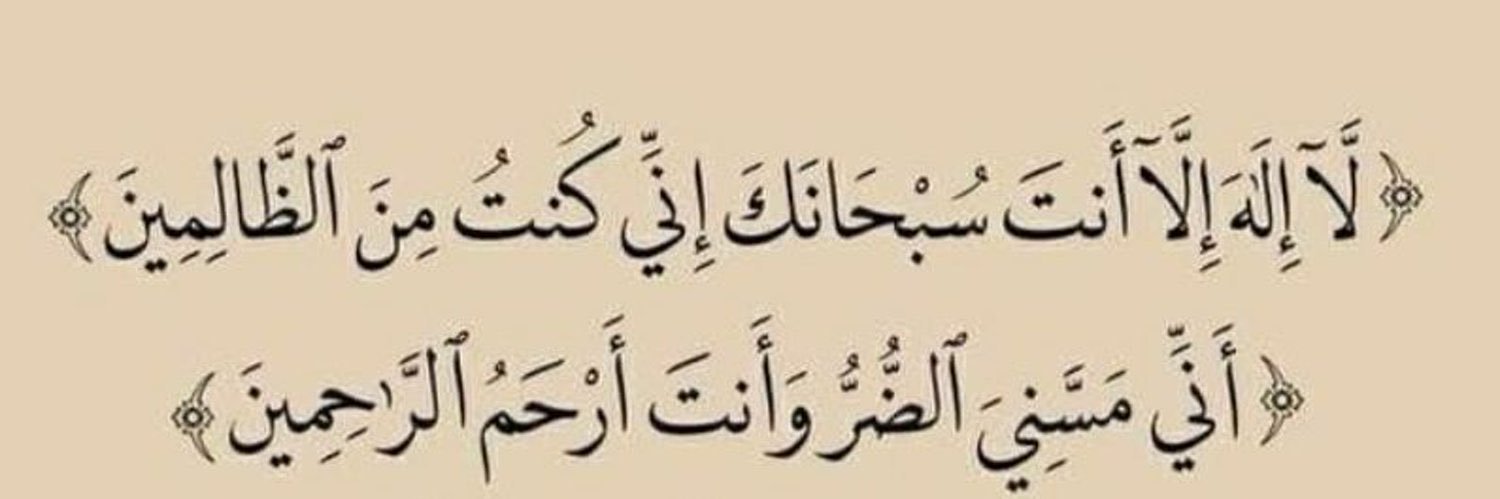 ﴿لَّآ إِلَٰهَ إِلَّآ أَنتَ سُبْحَانَكَ إِنِّي كُنتُ مِنَ ٱلظَّالِمِينَ﴾
﴿أَنِّي مَسَّنِيَ ٱلضُّرُّ وَأَنتَ أَرْحَمُ ٱلرَّٰحِمِينَ﴾